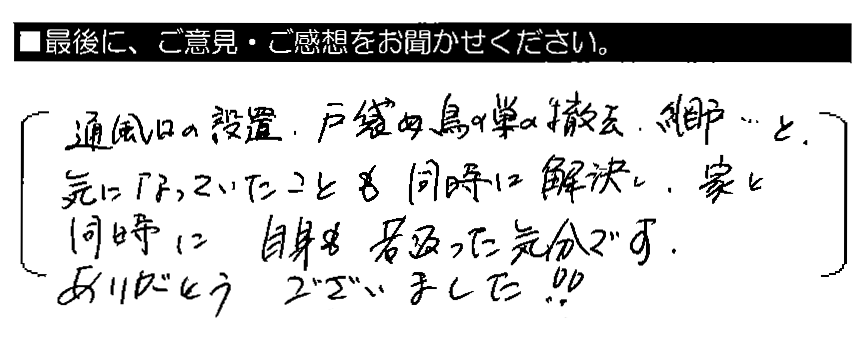 ■最後に、ご意見・ご感想をお聞かせください。
通風口の設置、戸袋内鳥の巣の撤去、網戸…と、
気になっていたことも同時に解決し、家と
同時に自身も若返った気分です。
ありがとうございました!!